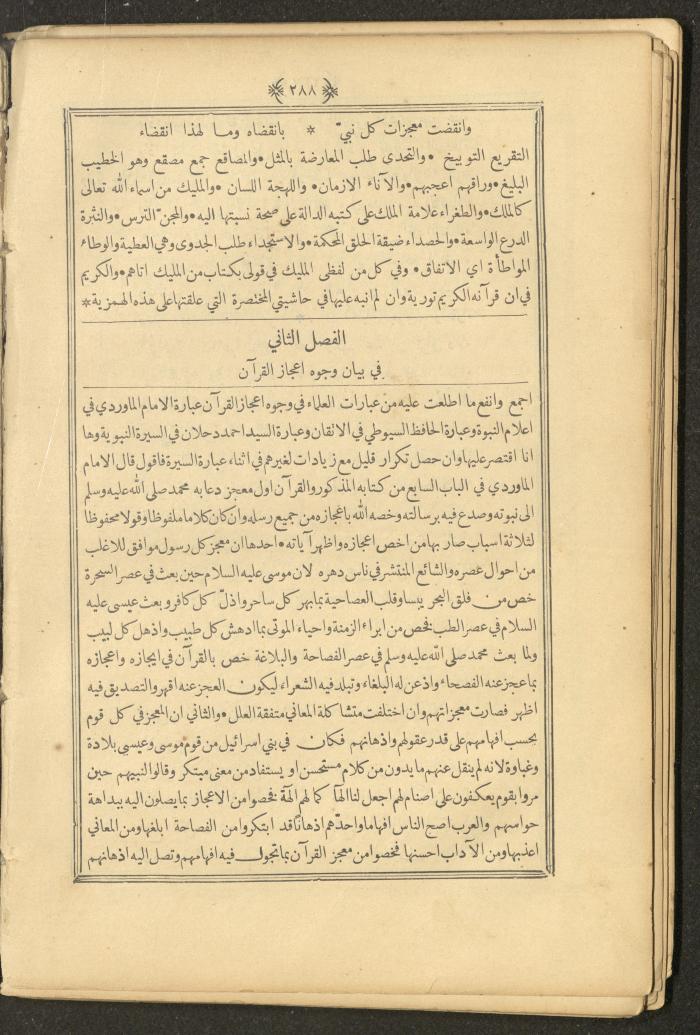 ٢٨٨
وانقضت معجزات كل نبيّ * بانقضاه وما لهذا انقضاء
التقريع التوبيخ • والتحدى طلب المعارضة بالمثل • والمصاقع جمع مصقع وهو الخطيب
البليغ • وراقهم اعجبهم • والآناء الازمان • واللهجة اللسان • والمليك من اسماء الله تعالى
كالملك • والطغراء علامة الملك على كتبه الدالة على صحة نسبتها اليه • والمجنّ الترس • والنثرة
الدرع الواسعة • والحصداء ضيقة الحلق المحكمة • والاستجداء طلب الجدوى وهي العطية والوطاء
المواطأة اي الاتفاق • وفي كل من لفظى المليك في قولى بكتاب من المليك اتاهم • والكريم
في ان قرآنه الكريم تورية وان لم انبه عليها في حاشيتي المختصرة التي علقتها على هذه الهمزية *
الفصل الثاني
في بيان وجوه اعجاز القرآن
اجمع وانفع ما اطلعت عليه من عبارات العلماء في وجوه اعجاز القرآن عبارة الامام الماوردي في
اعلام النبوة وعبارة الحافظ السيوطي في الاتقان وعبارة السيد احمد دحلان في السيرة النبوية وها
انا اقتصر عليها وان حصل تكرار قليل مع زيادات لغيرهم في اثناء عبارة السيرة فاقول قال الامام
الماوردي في الباب السابع من كتابه المذكور والقرآن اول معجز دعا به محمد صلى الله عليه وسلم
الى نبوته وصدع فيه برسالته وخصه الله باعجازه من جميع رسله وان كان كلاما ملفوظا وقولا محفوظا
لثلاثة اسباب صار بها من اخص اعجازه واظهر آياته • احدها ان معجز كل رسول موافق للاغلب
من احوال عصره والشائع المنتشر في ناس دهره لان موسى عليه السلام حين بعث في عصر السحرة
خص من فلق البحر يبسا وقلب العصا حية بما بهر كل ساحر واذلّ كل كافر وبعث عيسى عليه
السلام في عصر الطب فخص من ابراء الزمنة واحياء الموتى بما ادهش كل طبيب واذهل كل لبيب
ولما بعث محمد صلى الله عليه وسلم في عصر الفصاحة والبلاغة خص بالقرآن في ايجازه واعجازه
بما عجز عنه الفصحاء واذعن له البلغاء وتبلد فيه الشعراء ليكون العجز عنه اقهر والتصديق فيه
اظهر فصارت معجزاتهم وان اختلفت متشاكلة المعاني متفقة العلل • والثاني ان المعجز في كل قوم
بحسب افهامهم على قدر عقولهم واذهانهم فكان في بني اسرائيل من قوم موسى وعيسى بلادة
وغباوة لانه لم ينقل عنهم ما يدون من كلام مستحسن او يستفاد من معنى مبتكر وقالوا لنبيهم حين
مروا بقوم يعكفون على اصنام لهم اجعل لنا الها كما لهم آلهة فخصوا من الاعجاز بما يصلون اليه ببداهة
حواسهم والعرب اصح الناس افهاما واحدّهم اذهانا قد ابتكروا من الفصاحة ابلغها ومن المعاني
اعذبها ومن الآداب احسنها فخصوا من معجز القرآن بما تجول فيه افهامهم وتصل اليه اذهانهم